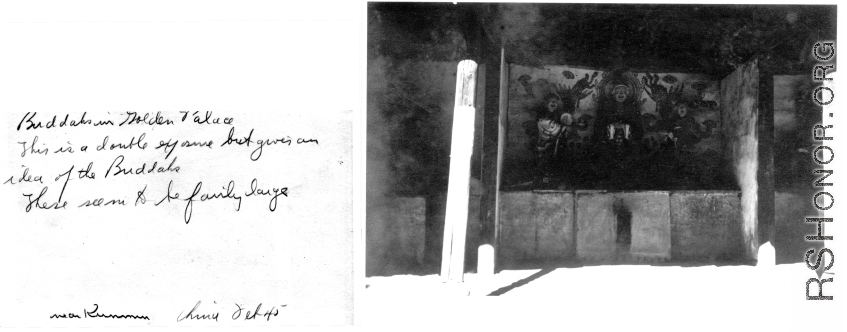 Buddahs in Golden Palace
This is a double exposure but gives an
idea of the Buddahs
These seem to be fairly large
near Kunming China Feb 45
RSHONOR.ORG